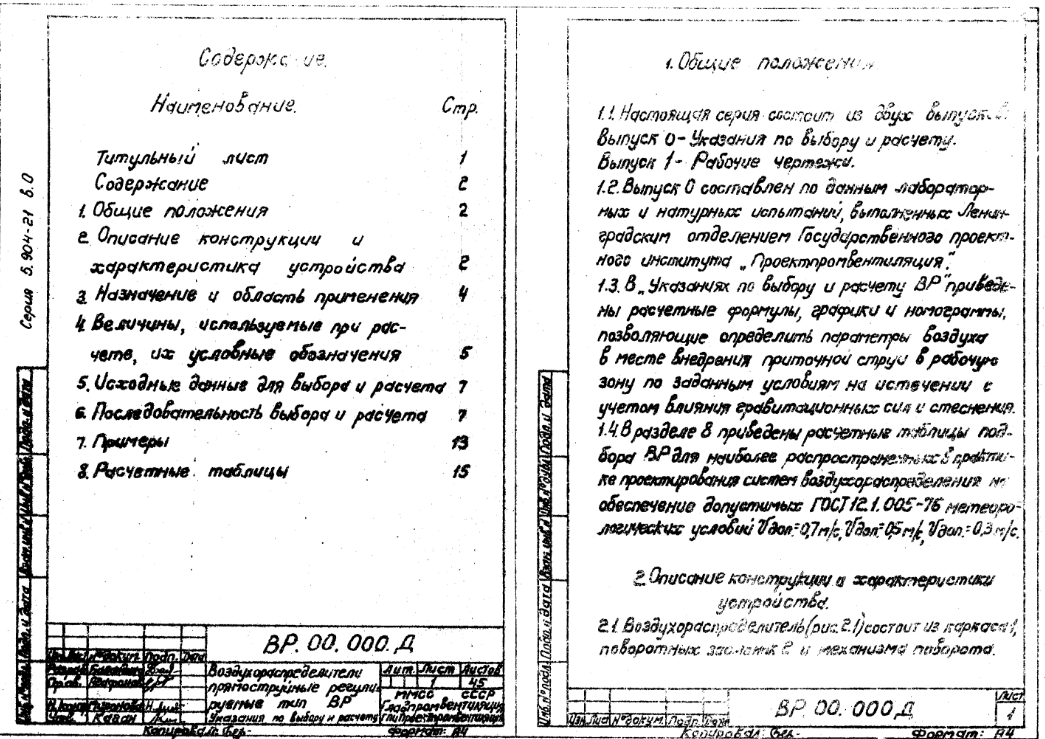 Серия 5.904-21 в.0
Содержание.
Наименование. Стр.
Титульный лист 1
Содержание 2
1. Общие положения 2
2. Описание конструкции и
характеристика устройства 2
3. Назначение и область применения 4
4. Величины, используемые при рас-
чете, их условные обозначения 5
5. Исходные данные для выбора и расчета 7
6. Последовательность выбора и расчета 7
7. Примеры 13
8. Расчетные таблицы 15
ВР. 00. 000. Д
Воздухораспределители
прямоструйные регули-
руемые тип ВР
Указания по выбору и расчету
Лит. Лист Листов
1 45
ММСС СССР
Главпромвентиляция
Копировал: Бер.- Формат: А4
1. Общие положения
1.1. Настоящая серия состоит из двух выпусков:
Выпуск 0 - Указания по выбору и расчету.
Выпуск 1 - Рабочие чертежи.
1.2. Выпуск 0 составлен по данным лаборатор-
ных и натурных испытаний, выполненных Ленин-
градским отделением Государственного проект-
ного института „Проектпромвентиляция".
1.3. В „Указаниях по выбору и расчету ВР" приведе-
ны расчетные формулы, графики и номограммы,
позволяющие определить параметры воздуха
в месте внедрения приточной струи в рабочую
зону по заданным условиям на истечении с
учетом влияния гравитационных сил и стеснения.
1.4. В разделе 8 приведены расчетные таблицы под-
бора ВР для наиболее распространенных в практи-
ке проектирования систем воздухораспределения на
обеспечение допустимых ГОСТ 12.1.005-76 метеоро-
логических условий Vдоп.=0,7м/с, Vдоп.=0,5м/с, Vдоп.=0,3м/с.
2. Описание конструкции и характеристики
устройства.
2.1. Воздухораспределитель (рис. 2.1) состоит из каркаса 1,
поворотных заслонок 2 и механизма поворота.
Изм. Лист № докум. Подп. Дата
ВР. 00. 000 Д
Лист
1
Копировал: Бер.- Формат: А4